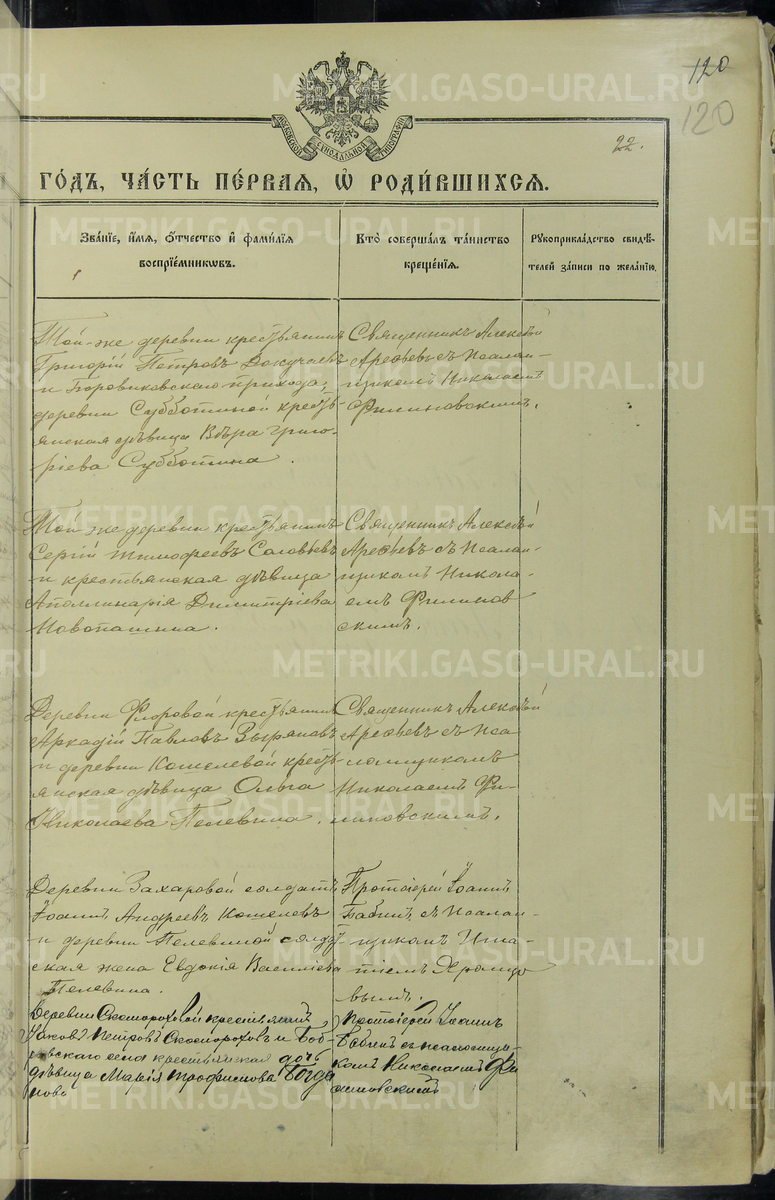 120
120
22.
МОСКОВСКОЙ СѴНОДАЛЬНОЙ ТИПОГРАФІИ
ГО́ДЪ, ЧА́СТЬ ПЕ́РВАЯ, Ѡ҆ РОДИ́ВШИХСЯ.
Зва́нїе, и҆́мя, ѻ҆́тчество и҆ фами́лїя
воспрїе́мникѡвъ.
Кто̀ соверша́лъ та́инство
креще́нїя.
Рꙋкоприкла́дство свидѣ́-
телей за́писи по жела́нїю.
Той-же деревни крестьянинъ
Григорій Петровъ Докучаевъ
и Боровиковскаго прихода,
деревни Субботиной кресть-
янская дѣвица Вѣра Григо-
ріева Субботина.
Священникъ Алексѣй
Арефьевъ съ псалом-
щикомъ Николаемъ
Филиновскимъ.
Той же деревни крестьянинъ
Сергій Тимофеевъ Соловьевъ
и крестьянская дѣвица
Аполлинарія Димитріева
Новопашина.
Священникъ Алексѣй
Арефьевъ съ псалом-
щикомъ Никола-
емъ Филинов
скимъ.
Деревни Фроровой крестьянинъ
Аркадій Павловъ Зыряновъ
и деревни Кошелевой кресть-
янская дѣвица Ольга
Николаева Пелевина.
Священникъ Алексѣй
Арефьевъ съ пса
ломщикомъ
Николаемъ Фи-
линовскимъ.
Деревни Захаровой солдатъ
Іоаннъ Андреевъ Кошелевъ
и деревни Пелевиной солдат-
ская жена Евдокія Василіева
Пелевина.
Протоіерей Іоаннъ
Бабинъ съ псалом-
щикомъ Игна-
тіемъ
Деревни Скоморохвой крестьянинъ
Іаковъ Петровъ Скомороховъ и Боб-
ровскаго села крестьянская дочь
дѣвица Марія Трофимова Богда
нова
Протоіерей Іоаннъ
Бабинъ съ псаломщи-
комъ Николаемъ Фи
линовскимъ
METRIKI.GASO-URAL.RU